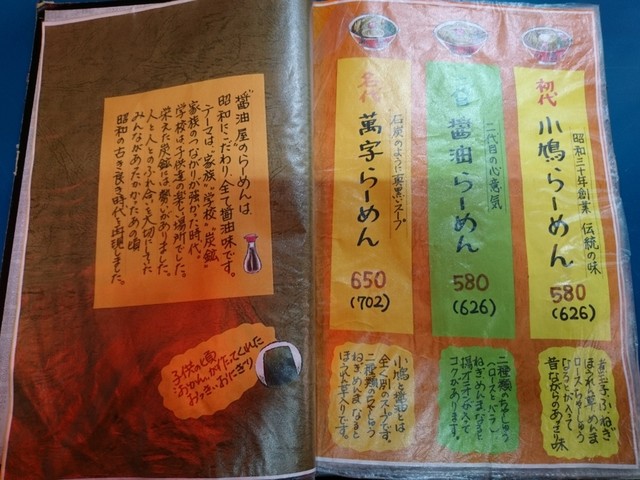 醤油屋のらーめんは、
昭和にこだわり、全て醤油味です。
テーマは、“家族”“学校”“炭鉱”
家族のつながりが強かった時代。
学校は子供達の楽しい場所でした。
栄えた炭鉱には誓いがありました。
人と人とのふれ合いを大切にしてた
みんながあたたかかったあの頃
昭和の古き良き時代を再現しました。
子供の頃
おかんがたってくれた
おっきぃおにぎり
初代
小鳩らーめん
昭和三十年創業 伝統の味
580
(626)
煮玉子、ふ、ねぎ
ほうれん草、めんま
ロースちゃーしゅう
なるとが入って
昔ながらのあっさり味
醤油らーめん
二代目の心意気
580
(626)
二種類のちゃーしゅう
(ロースとバラ)
ねぎ、めんま、なると
揚げニンニク入って
コクがあります。
萬字らーめん
石炭のように真黒いスープ
650
(702)
小鳩、醤油とは
全く別のスープです。
二種類のちゃーしゅう
ねぎ、めんま、なると
ほうれん草入りです。